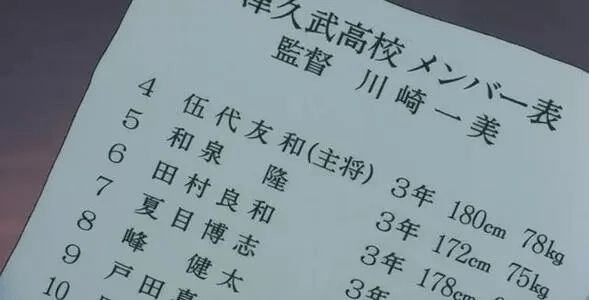 津久武高校 メンバー表
監督 川崎一美
4 伍代友和(主将) 3年 180cm 78kg
5 和泉 隆 3年 172cm 75kg
6 田村良和 3年 178cm
7 夏目博志 3年
8 峰 健太
9 戸田
10